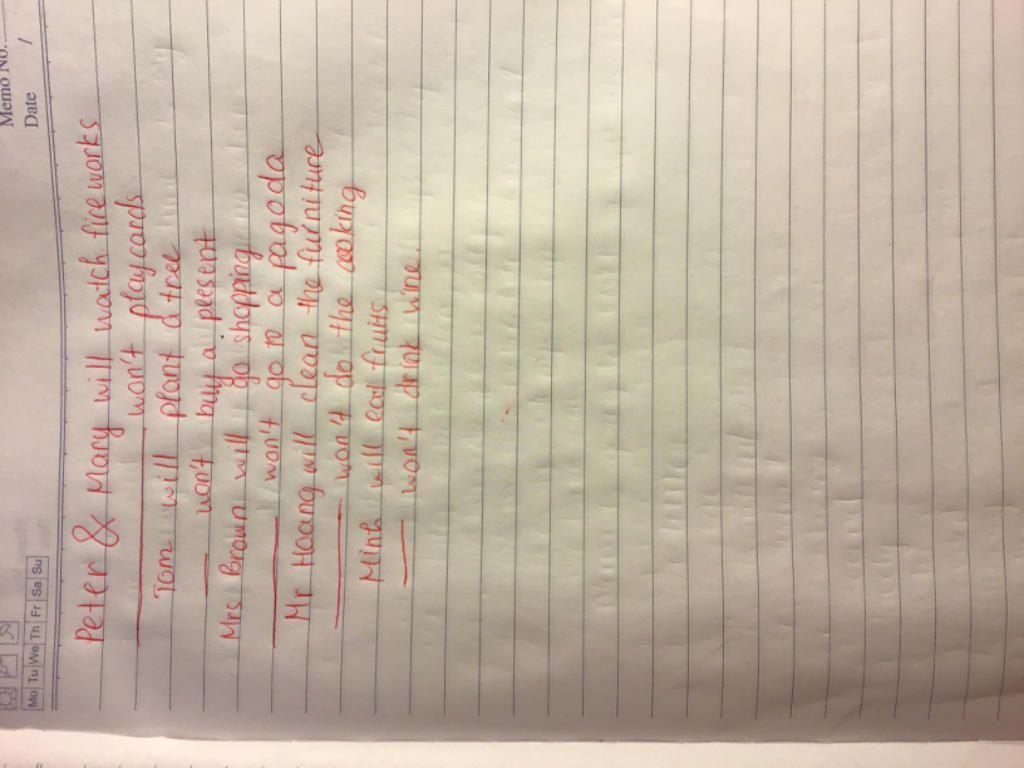 Memo No.
Date /
Mo Tu We Th Fr Sa Su
Peter & Mary will watch fireworks
won't play cards
Tom will plant a tree
won't buy a present
Mrs Brown will go shopping
won't go to a pagoda
Mr Hoang will clean the furniture
won't do the cooking
Minh will eat fruits
won't drink wine.